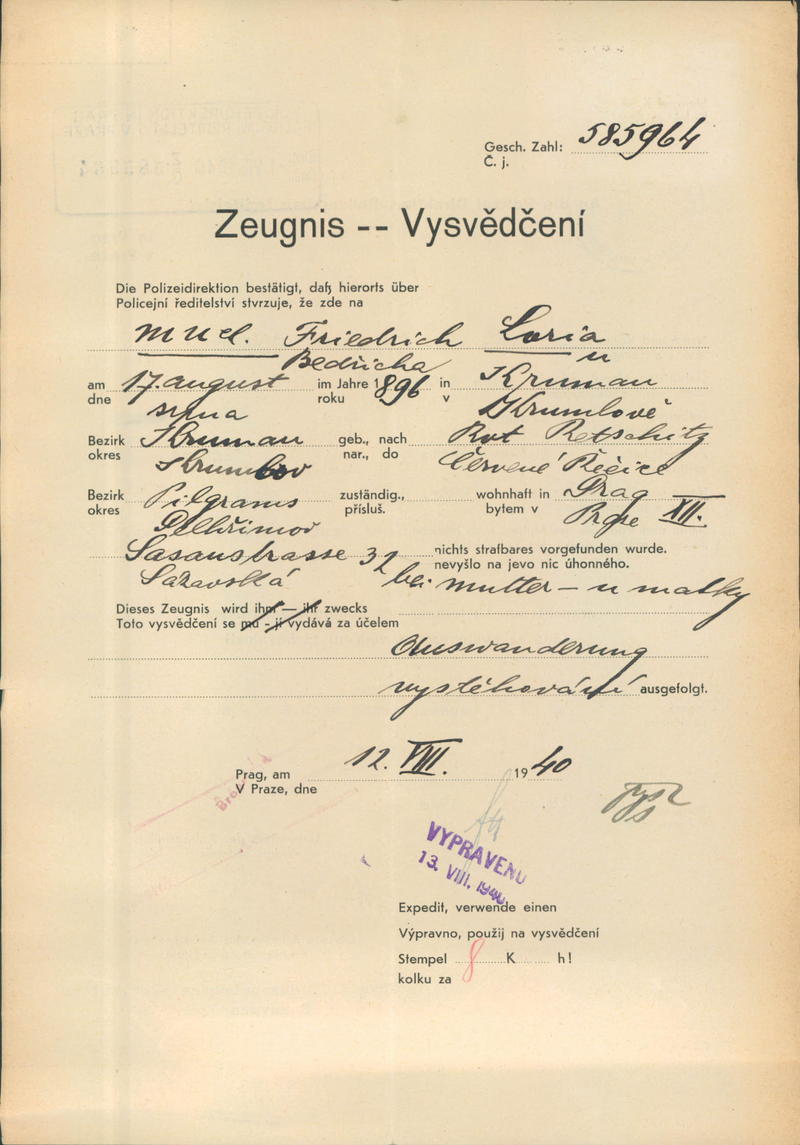 Gesch. Zahl: 585964
Č. j.
Zeugnis -- Vysvědčení
Die Polizeidirektion bestätigt, daß hierorts über
Policejní ředitelství stvrzuje, že zde na
MUC. Friedrich Loria
Bedřicha
am 17. august im Jahre 1896 in Kruman
dne srpna roku v Krumlově
Bezirk Kruman geb., nach Rot Retschitz
okres Krumlov nar., do Červené Řečice
Bezirk Pilgrams zuständig., wohnhaft in Prag XII.
okres Pelhřimov přísluš. bytem v Praze
Sasaustrasse 32 nichts strafbares vorgefunden wurde.
Sázavská nevyšlo na jevo nic úhonného.
bei mutter – u matky
Dieses Zeugnis wird ihm — ihr zwecks
Toto vysvědčení se mu - jí vydává za účelem
Auswanderung
vystěhování ausgefolgt.
Prag, am 12. VIII. 1940
V Praze, dne
VYPRAVENO
13. VIII. 1940
Expedit, verwende einen
Výpravno, použij na vysvědčení
Stempel 8 K h!
kolku za